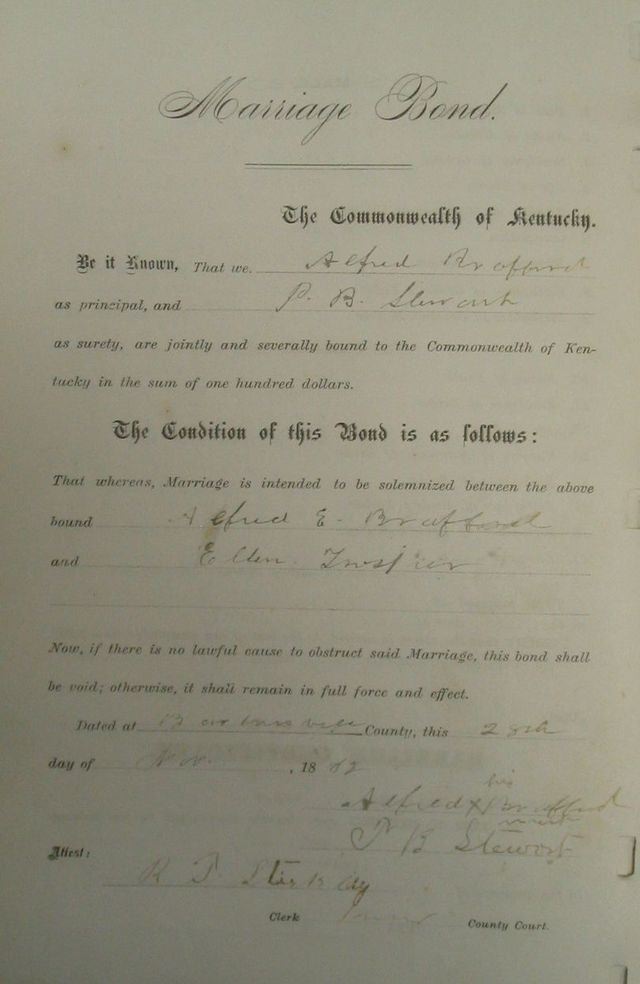 Marriage Bond.
The Commonwealth of Kentucky.
Be it Known, That we. Alfred Brafford
as principal, and P. B. Stewart
as surety, are jointly and severally bound to the Commonwealth of Ken-
tucky in the sum of one hundred dollars.
The Condition of this Bond is as follows:
That whereas, Marriage is intended to be solemnized between the above
bound Alfred E. Brafford
and Ellen
Now, if there is no lawful cause to obstruct said Marriage, this bond shall
be void; otherwise, it shall remain in full force and effect.
Dated at Barbourville County, this 28th
day of Nov. , 1882
his
Alfred X Brafford
mark
P B Stewart
Attest:
Clerk County Court.